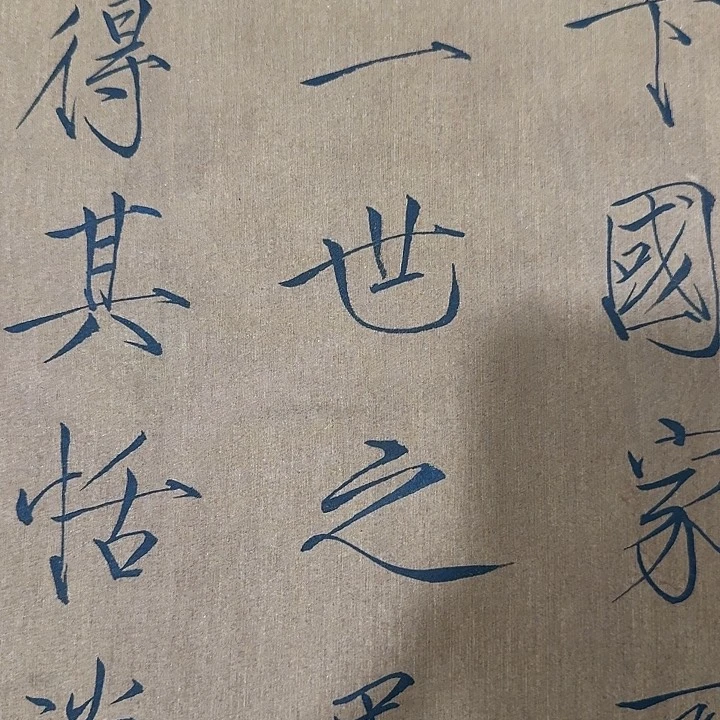 下國家
一世之
得其恬